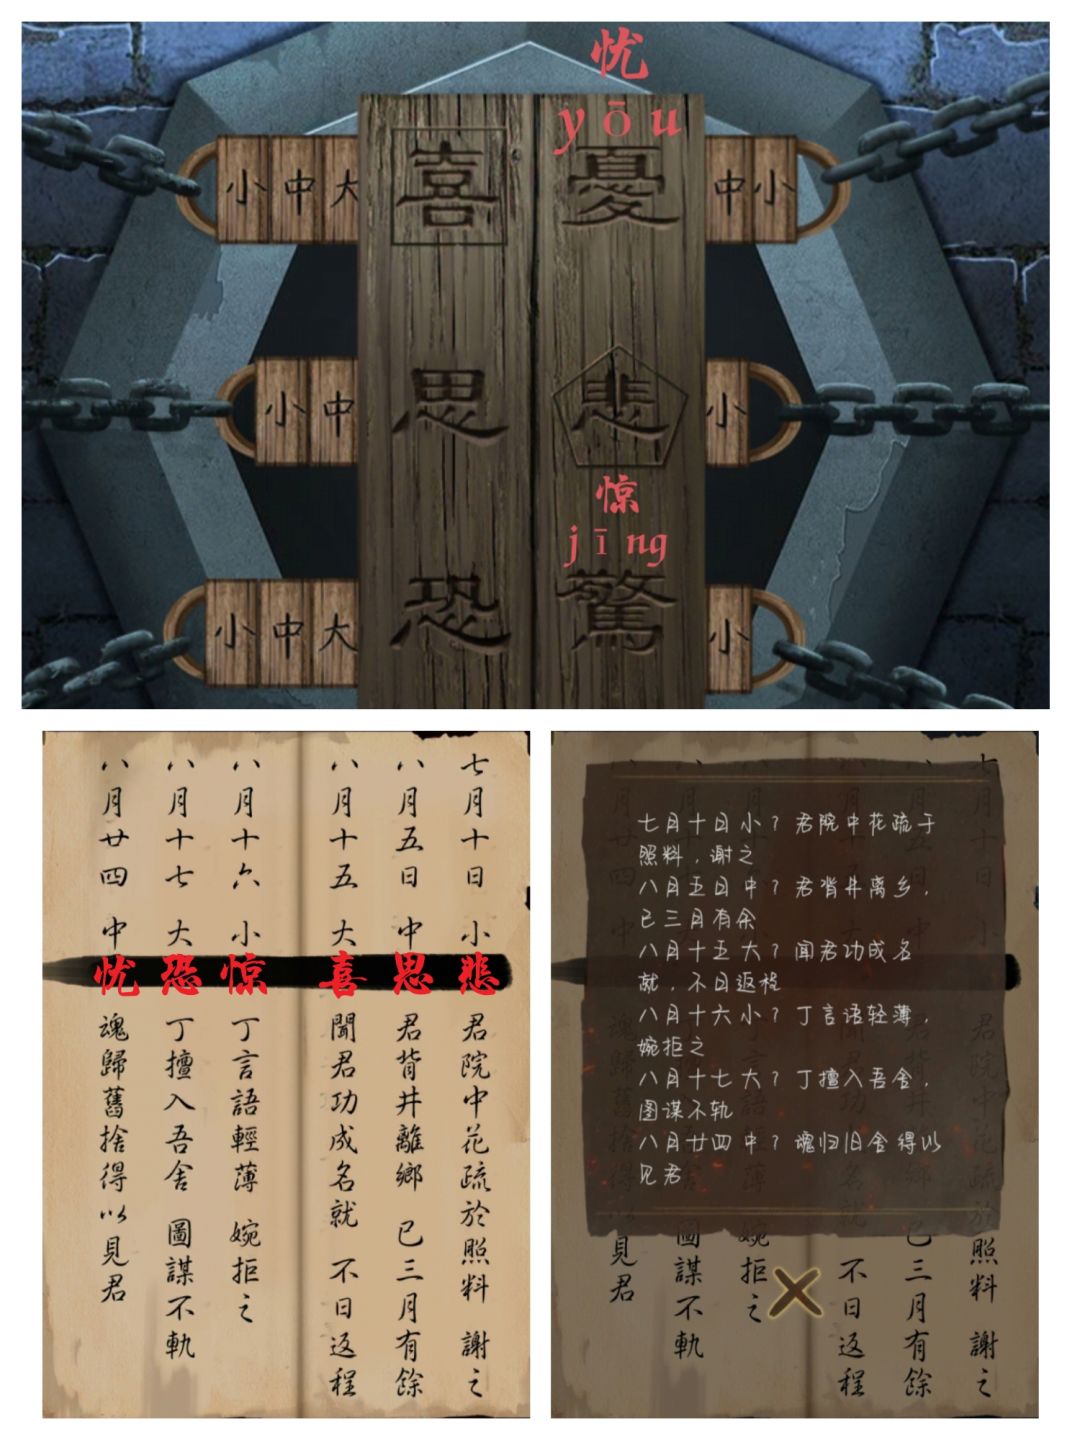 忧
yōu
喜
憂
小中大
中小
思
悲
小中
小
惊
jīng
恐
驚
小中大
小
七月十日 小 悲 君院中花疏於照料 謝之
八月五日 中 思 君背井離鄉 已三月有餘
八月十五 大 喜 聞君功成名就 不日返程
八月十六 小 惊 丁言語輕薄 婉拒之
八月十七 大 恐 丁擅入吾舍 圖謀不軌
八月廿四 中 忧 魂歸舊捨得以見君
七月十日小？君院中花疏于
照料，谢之
八月五日中？君背井离乡，
已三月有余
八月十五大？闻君功成名
就，不日返程
八月十六小？丁言语轻薄，
婉拒之
八月十七大？丁擅入吾舍，
图谋不轨
八月廿四中？魂归旧舍得以
见君